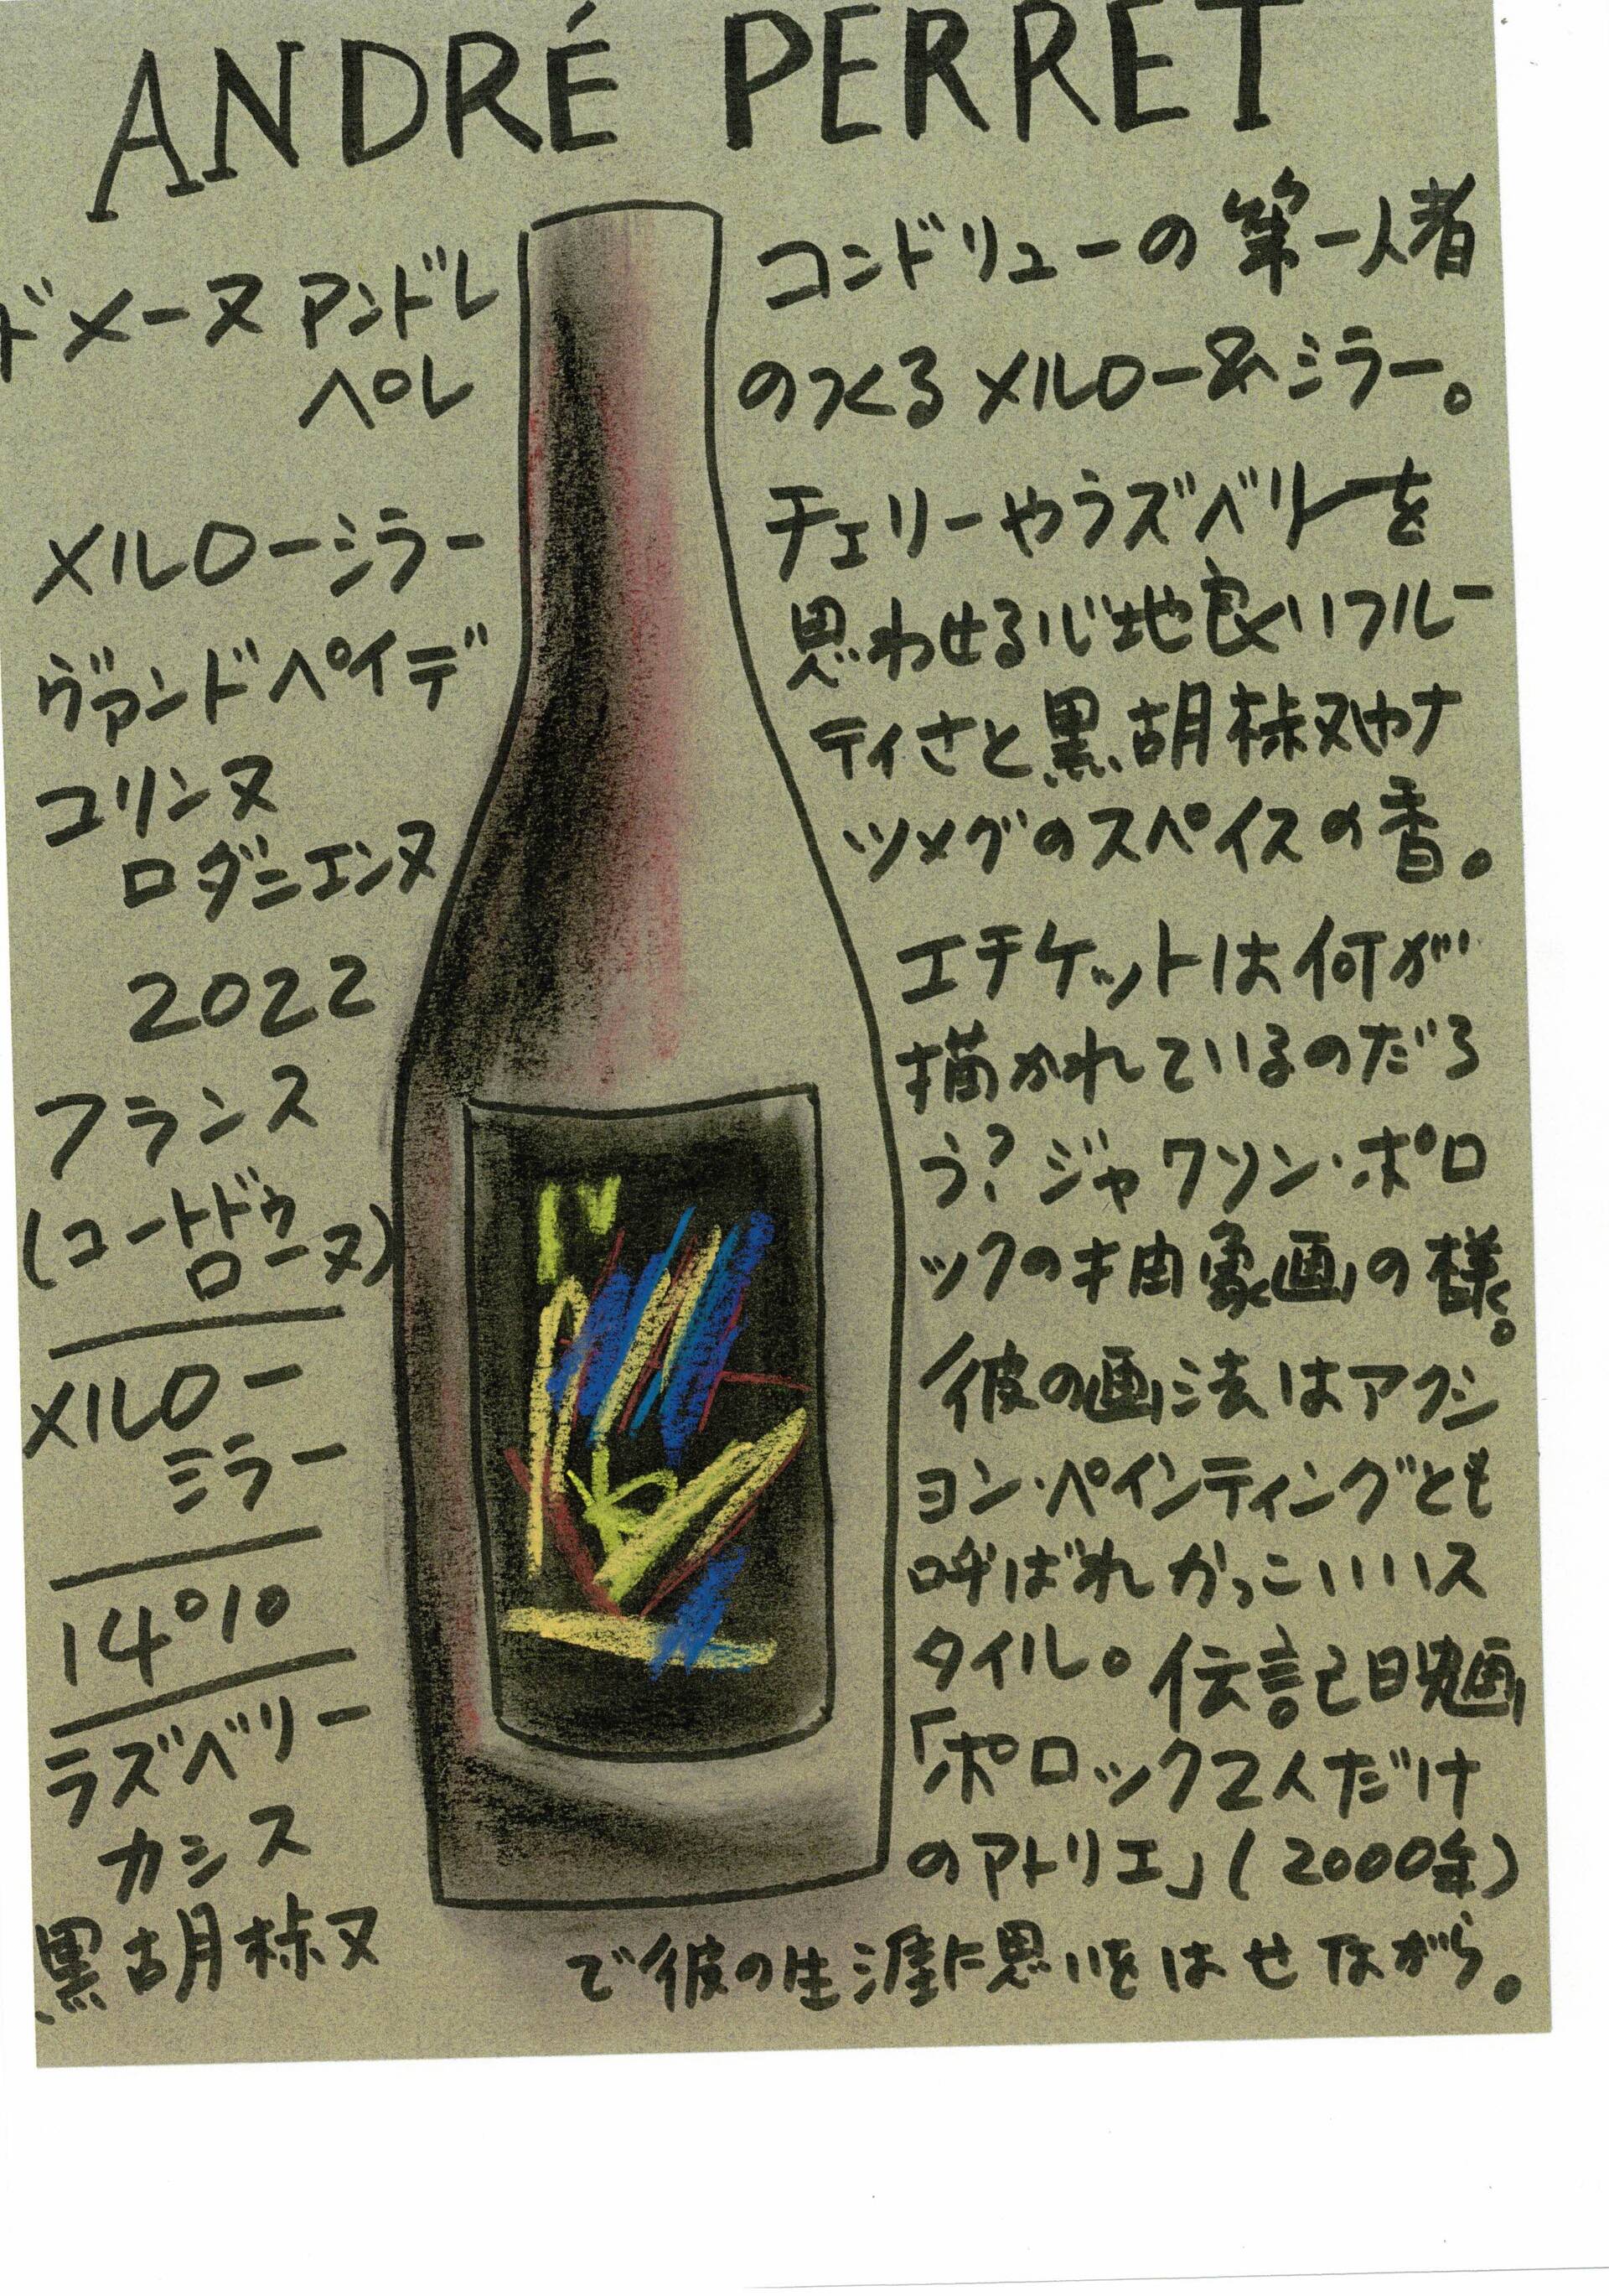 ANDRÉ PERRET
ドメーヌ アンドレ
ペレ
メルローシラー
ヴァンドペイデ
コリンヌ
ロダニエンヌ
2022
フランス
(コートドゥ
ローヌ)
メルロー
シラー
14%
ラズベリー
カシス
黒胡椒
コンドリューの第一人者
のつくるメルロー&シラー。
チェリーやラズベリーを
思わせる心地良いフルー
ティさと黒胡椒やナ
ツメグのスペイスの香。
エチケットは何が
描かれているのだろ
う?ジャクソン・ポロ
ックの抽象画の様。
彼の画法はアクシ
ョン・ペインティングとも
呼ばれかっこいいス
タイル。伝記映画
「ポロック2人だけ
のアトリエ」(2000年)
で彼の生涯に思いをはせながら。